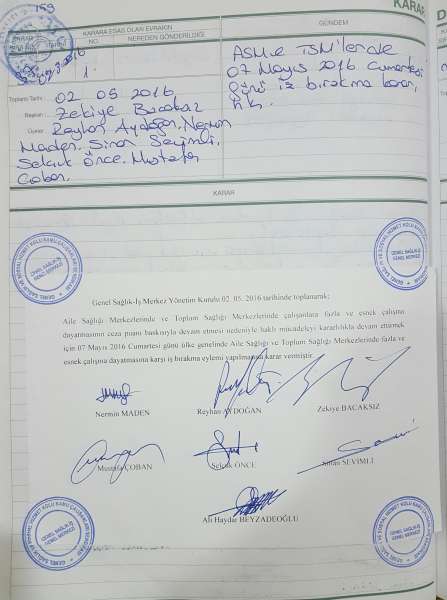 159
KARAR
KARARA ESAS OLAN EVRAKIN
GÜNDEM
NO.
NEREDEN GÖNDERİLDİĞİ
1.
ASM ve TSM'lerde
07 Mayıs 2016 Cumartesi
günü iş bırakma kararı
hk.
Toplantı Tarihi : 02 05 2016
Başkan : Zekiye Bacaksız
Üyeler : Reyhan Aydoğan, Nermin
Maden, Sinan Sevimli,
Selçuk Önce, Mustafa
Çoban,
KARAR
Genel Sağlık-İş Merkez Yönetim Kurulu 02. 05. 2016 tarihinde toplanarak;
Aile Sağlığı Merkezlerinde ve Toplum Sağlığı Merkezlerinde çalışanlara fazla ve esnek çalışma
dayatmasının ceza puanı baskısıyla devam etmesi nedeniyle haklı mücadeleyi kararlılıkla devam ettirmek
için 07 Mayıs 2016 Cumartesi günü ülke genelinde Aile Sağlığı ve Toplum Sağlığı Merkezlerinde fazla ve
esnek çalışma dayatmasına karşı iş bırakma eylemi yapılmasına karar vermiştir.
Nermin MADEN
Reyhan AYDOĞAN
Zekiye BACAKSIZ
Mustafa ÇOBAN
Selçuk ÖNCE
Sinan SEVİMLİ
Ali Haydar BEYZADEOĞLU
GENEL SAĞLIK-İŞ
GENEL MERKEZİ
GENEL SAĞLIK-İŞ
GENEL MERKEZİ
GENEL SAĞLIK-İŞ
GENEL MERKEZİ
GENEL SAĞLIK-İŞ
GENEL MERKEZİ